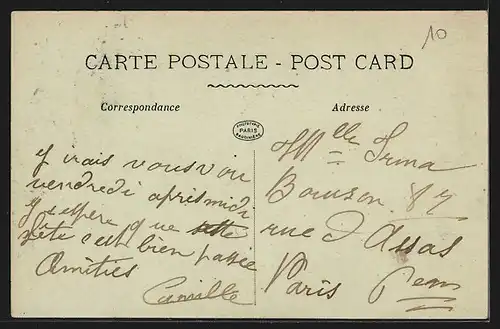 10
CARTE POSTALE - POST CARD
Correspondance
Adresse
PARIS
J irais vous voir
vendredi après midi
J espère que cette
fête c est bien passée
Amitiés
Camille
Mlle Irma
87
rue d Assas
Paris